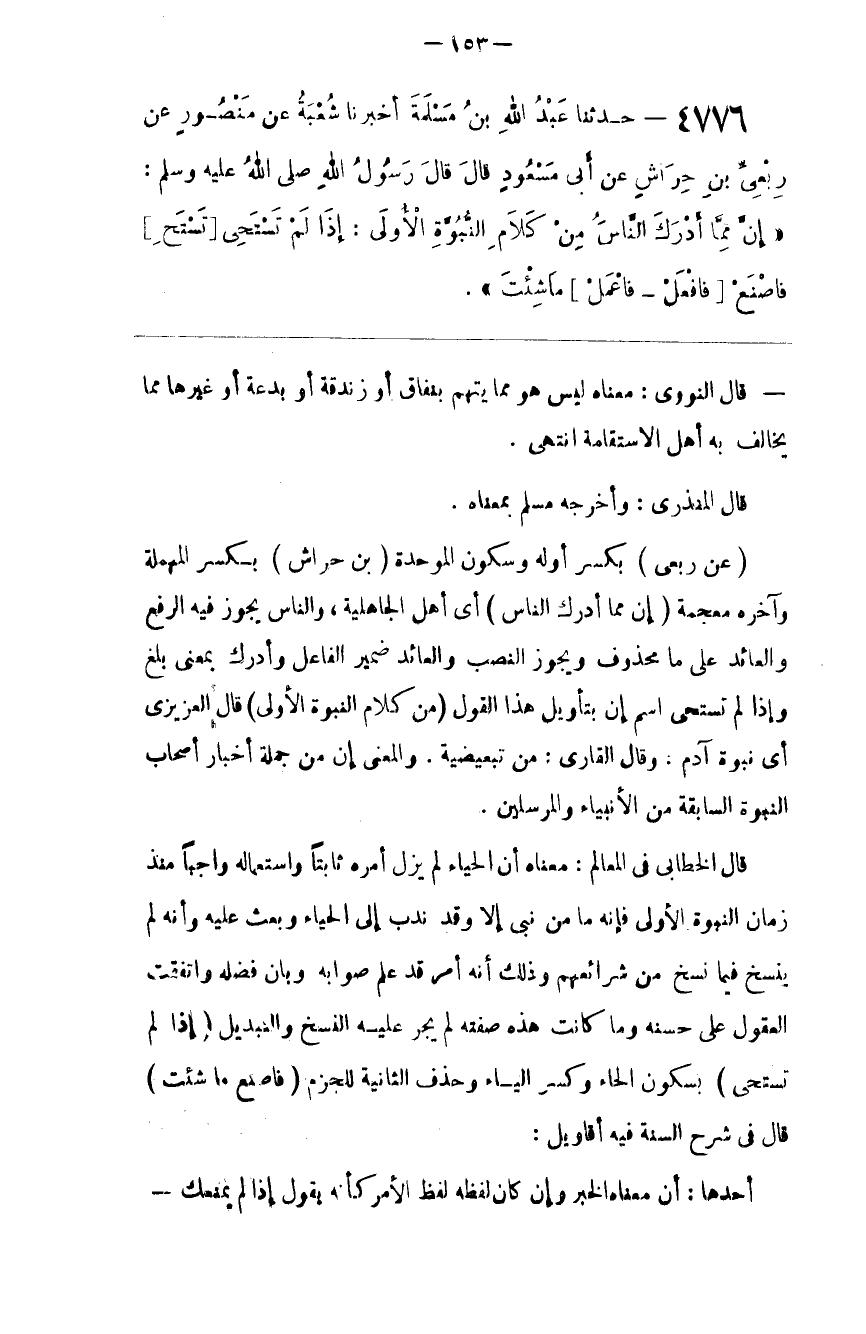 — ١٥٣ —
٤٧٧٦ — حـدثنا عَبْدُ اللهِ بنُ مَسْلَمَةَ أخبرنا شُعْبَةُ عن مَنْصُـورٍ عن
رِبْعِيِّ بنِ حِرَاشٍ عن أَبى مَسْعُودٍ قالَ قالَ رَسُولُ اللهِ صلى اللهُ عليه وسلم :
« إنَّ مِمَّا أَدْرَكَ النَّاسُ مِنْ كَلاَمِ النُّبُوَّةِ الْأُولَى : إِذَا لَمْ تَسْتَحِى [ تَسْتَحِ ]
فاصْنَعْ [ فافْعَلْ ــ فاعْمَلْ ] ماَشِئْتَ » .
— قال النووى : معناه ليس هو مما يتهم بنفاق أو زندقة أو بدعة أو غيرها مما
يخالف به أهل الاستقامة انتهى .
قال المنذرى : وأخرجه مسلم بمعناه .
( عن ربعى ) بكسر أوله وسكون الموحدة ( بن حراش ) بـكسر المهملة
وآخره معجمة ( إن مما أدرك الناس ) أى أهل الجاهلية ، والناس يجوز فيه الرفع
والعائد على ما محذوف ويجوز النصب والعائد ضمير الفاعل وأدرك بمعنى بلغ
وإذا لم تستحى اسم إن بتأويل هذا القول (من كلام النبوة الأولى) قال العزيزى
أى نبوة آدم : وقال القارى : من تبعيضية . والمعنى إن من جملة أخبار أصحاب
النبوة السابقة من الأنبياء والمرسلين .
قال الخطابى فى المعالم : معناه أن الحياء لم يزل أمره ثابتاً واستعماله واجباً منذ
زمان النبوة الأولى فإنه ما من نبى إلا وقد ندب إلى الحياء وبعث عليه وأنه لم
ينسخ فيما نسخ من شرائعهم وذلك أنه أمر قد علم صوابه وبان فضله واتفقت
العقول على حسنه وما كانت هذه صفته لم يجر عليـه النسخ والتبديل ( إذا لم
تستحى ) بسكون الحاء وكسر اليـاء وحذف الثانية للجزم ( فاصنع ما شئت )
قال فى شرح السنة فيه أقاويل :
أحدها : أن معناه الخبر وإن كان لفظه لفظ الأمر كأنه يقول إذا لم يمنعك —